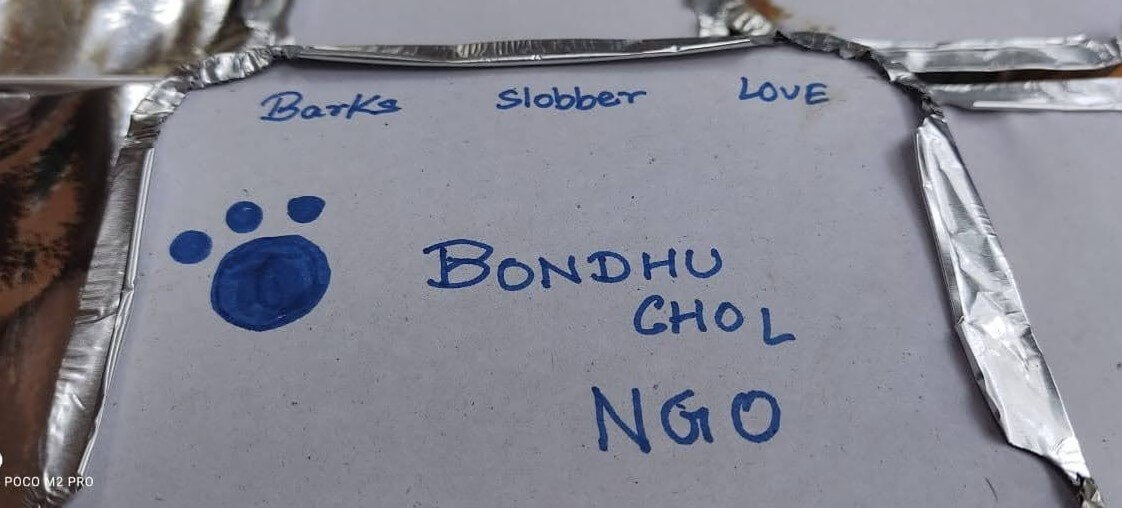 Barks Slobber LOVE
BONDHU
CHOL
NGO
POCO M2 PRO